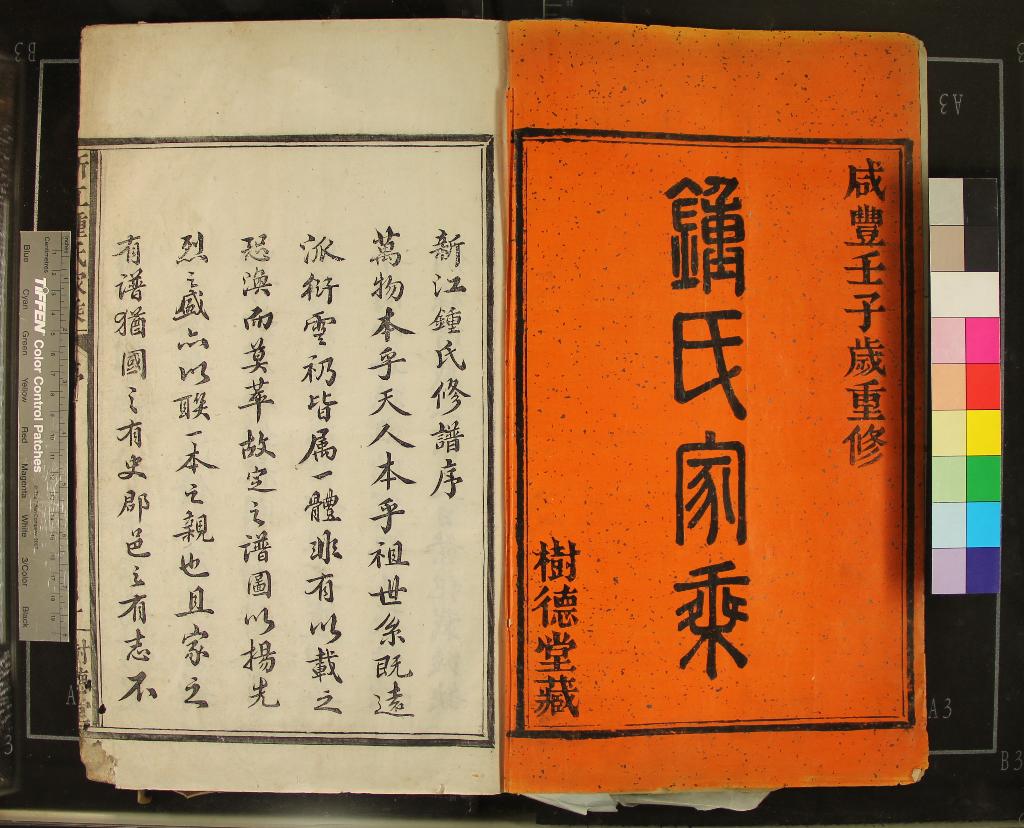 咸豐壬子歲重修
鍾氏家乘
樹德堂藏
新江鍾氏修譜序
萬物本乎天人本乎祖世系既遠
派衍雲礽皆属一體非有以載之
恐渙而莫萃故定之譜圖以揚先
烈之盛亦以联一本之親也且家之
有譜猶國之有史郡邑之有志不
TIFFEN Color Control Patches
Blue
Cyan
Green
Yellow
Red
Magenta
White
3/Color
Black
Centimetres
Inches
A3
A3
B3
B3